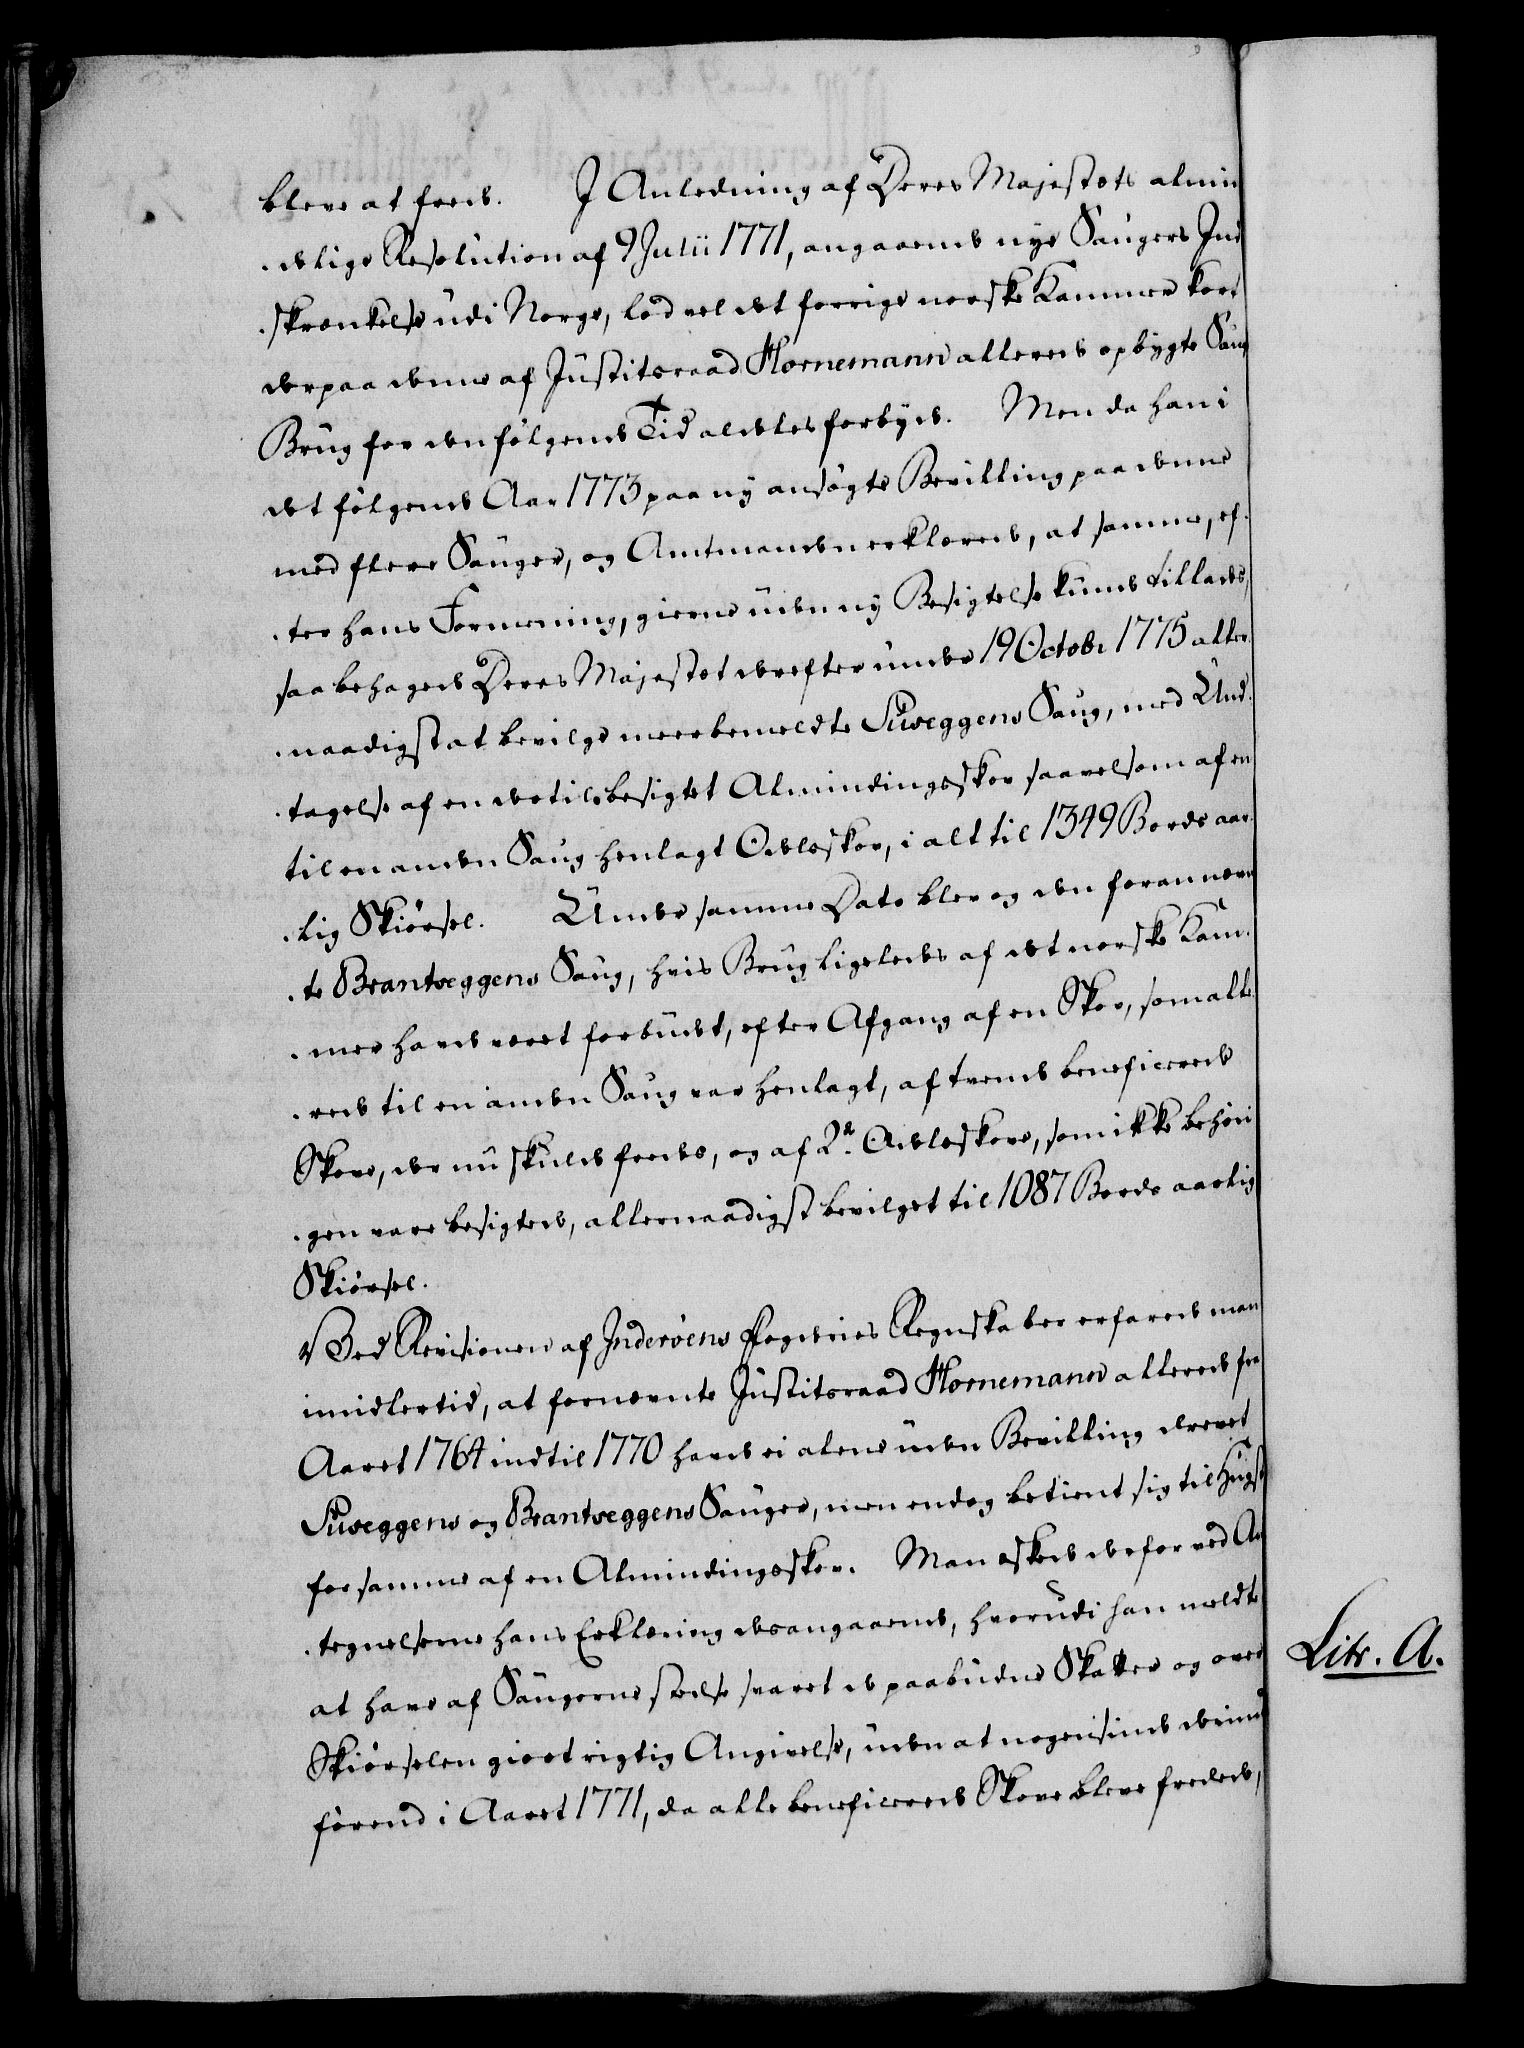 bleve at frede. I Anledning af Deres Majestæts almin
delige Resolution af 9 Julii 1771, angaaende nye Saugers Ind
skrænkelse udi Norge, lod vel det forrige norske Kammer kort
derpaa denne af Justitsraad Hornemann allerede opbygte Saug
Brug for den følgende Tid aldeles forbyde. Men da han i
det følgende Aar 1773 paa ny ansøgte Bevilling paa denne
med flere Sauger, og Amtmanden erklærede, at samme, ef
ter hans Formening, gierne uden ny Besigtelse kunde tillades,
saa behagede Deres Majestæt derefter under 19 Octobr 1775 aller
naadigst at bevilge meerbemeldte Susveggens Saug, med Und
tagelse af en dertil besigtet Almindingsskov saavelsom af en
til en anden Saug henlagt Odelsskov, i alt til 1349 Bords aar
lig Skiørsel. Under samme Dato blev og den forannævn
te Brantveggens Saug, hvis Brug ligeledes af det norske Kam
mer havde været forbudet, efter Afgang af en Skov, som alle
rede til en anden Saug var henlagt, af trende beneficerede
Skove, der nu skulde fredes, og af 2de Odelsskove, som ikke behøri
gen vare besigtede, allernaadigst bevilget til 1087 Bords aarlig
Skiørsel.
Ved Revisionen af Inderøens Fogderies Regnskaber erfarede man
imidlertid, at fornævnte Justitsraad Hornemann allerede fra
Aaret 1764 indtil 1770 havde ei alene uden Bevilling drevet
Susveggens og Brantveggens Sauger, men endog betient sig til Hugst
for samme af en Almindingsskov. Man æskede derfor ved An
tegnelserne hans Erklæring desangaaende, hvorudi han meldte
at have af Saugerne stedse svaret de paabudne Skatter og over
Skiørselen giort rigtig Angivelse, uden at nogensinde derimod
førend i Aaret 1771, da alle beneficerede Skove bleve fredede,
Litr. A.